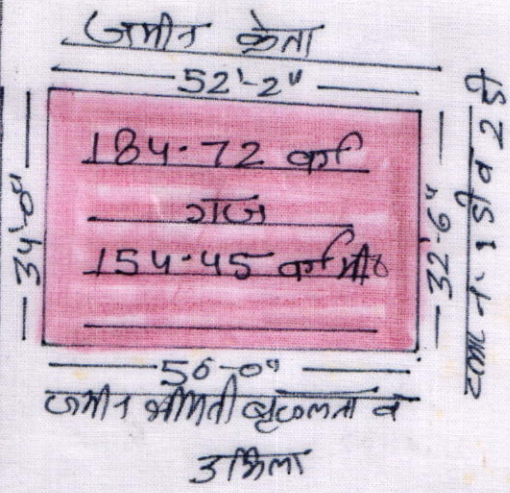 जमीन क्रेता
52'-2"
184.72 वर्ग
गज
154.45 वर्ग मी०
34'-0"
32'-6"
प्लाट नं. 1 डी व 2 डी
56'-0"
जमीन श्रीमती व
उर्मिला